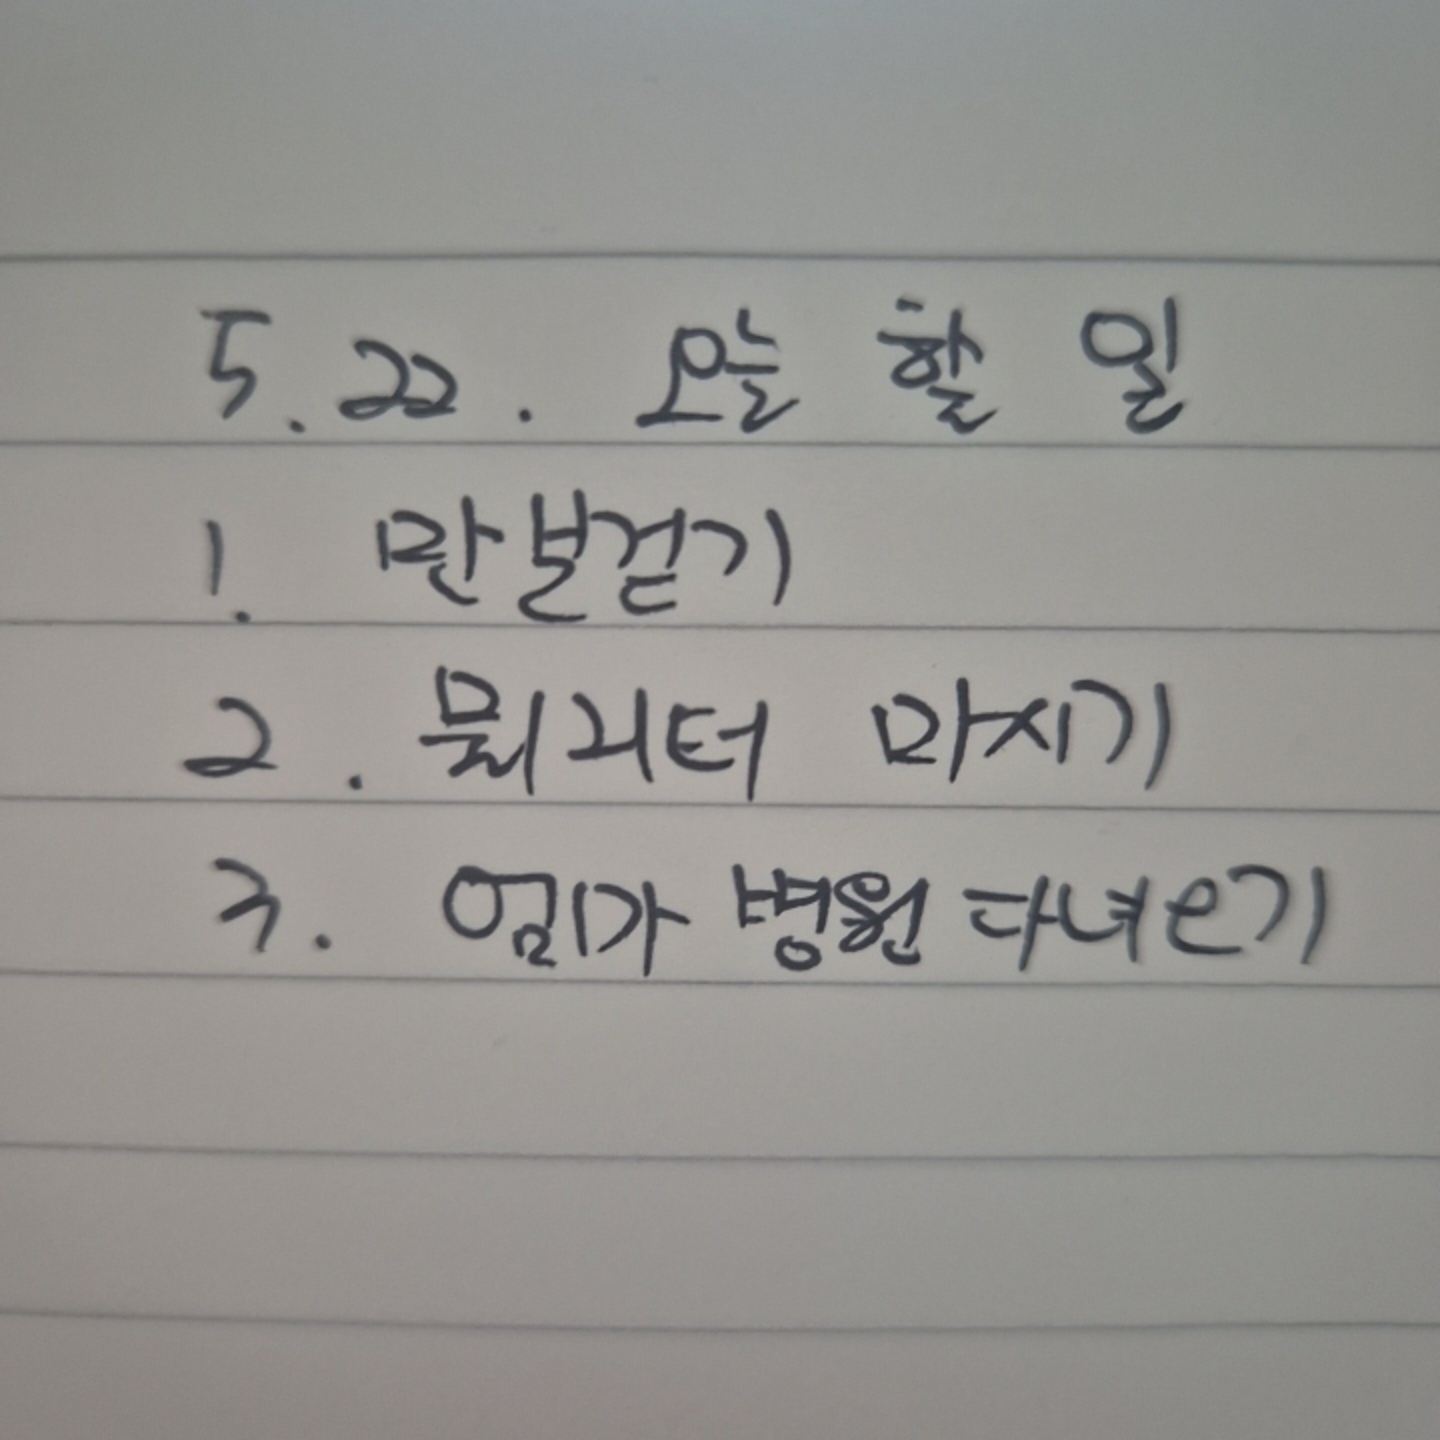 5.22. 오늘 할 일
1. 만보걷기
2. 물1리터 마시기
3. 엄마 병원 다녀오기